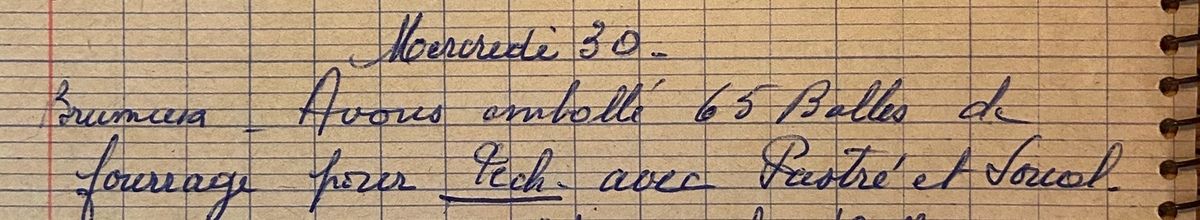 Mercredi 30.
Brumeux - Avons emballé 65 Balles de
fourrage pour Pech. avec Pastré et Soual.